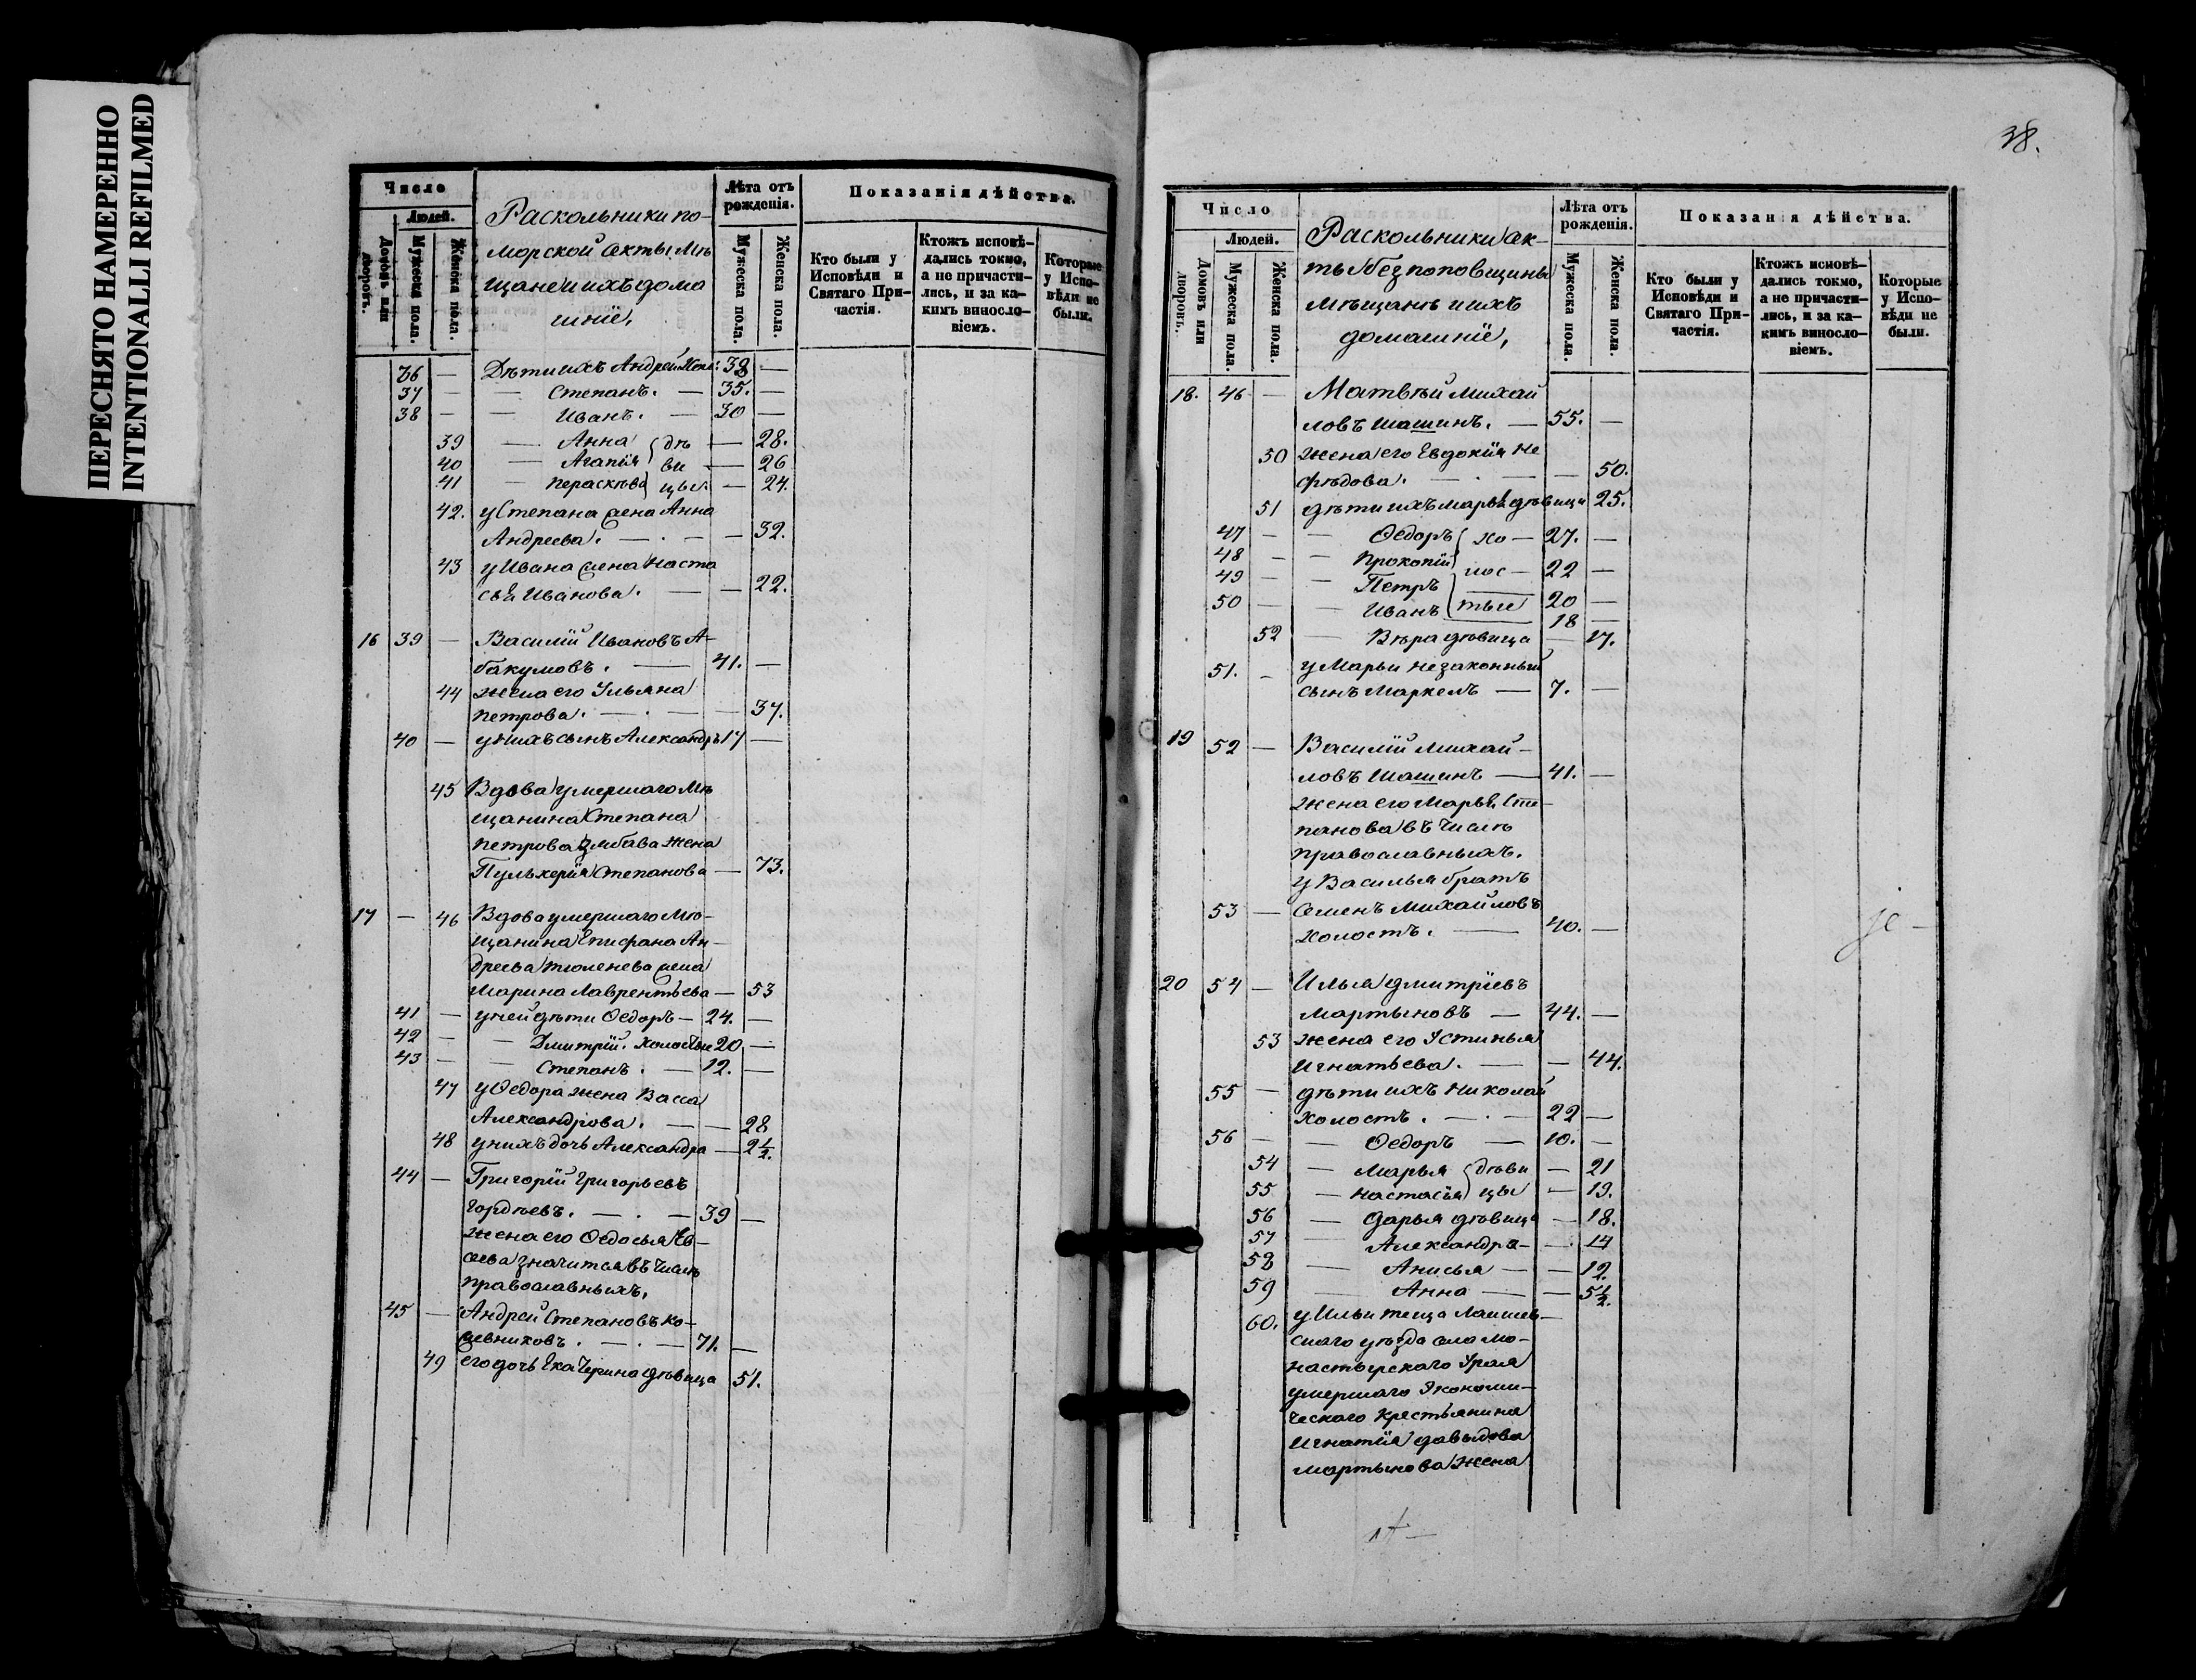 ПЕРЕСНЯТО НАМЕРЕННО
INTENTIONALLI REFILMED
Число
Людей.
Домовъ или дворовъ.
Мужеска пола.
Женска пола.
Раскольники по-
морской секты Мѣ
щане и ихъ дома
шніе,
Лѣта отъ рожденія.
Мужеска пола.
Женска пола.
Показанія дѣйства.
Кто были у Исповѣди и Святаго При-частія.
Ктожъ исповѣ-дались токмо, а не причасти-лись, и за ка-кимъ винословіемъ.
Которые у Испо-вѣди не были.
36 — Дѣти ихъ Андрей 38 —
37 — — Степанъ. — 35. —
38 — — Иванъ. — 30 —
39 — Анна дѣ — 28.
40 — Агапія ви — 26
41 — Пераскѣва цы. — 24.
42. у Степана жена Анна
Андреева. — . — — 32.
43 у Ивана жена Наста
сья Иванова. — — 22.
16 39 — Василій Ивановъ А-
бакумовъ. — 41. —
44 жена его Ульяна
Петрова. — . — — 37.
40 — у нихъ сынъ Александръ 17 —
45 Вдова умершаго Мѣ
щанина Степана
Петрова жена
Пульхерія Степанова — 73.
17 — 46 Вдова умершаго Мѣ-
щанина Епифана Ан-
дреева Тюленева жена
Марина Лаврентьева — 53
41 — у ней дѣти Ѳедоръ — 24. —
42 — — Дмитрій. холостые 20 —
43 — — Степанъ. — 12. —
47 у Ѳедора жена Васса
Александрова. — — 28
48 у нихъ дочь Александра — 2½.
44 — Григорій Григорьевъ
Гордѣевъ. — . — 39 —
жена его Ѳедосья Ев-
сева значится въ числѣ
православныхъ.
45 — Андрей Степановъ Ко-
жевниковъ. — . — 71. —
49 его дочь Екатерина дѣвица 51.
38.
Число
Людей.
Домовъ или дворовъ.
Мужеска пола.
Женска пола.
Раскольники сек-
ты безпоповщины
мѣщанъ и ихъ
домашніе,
Лѣта отъ рожденія.
Мужеска пола.
Женска пола.
Показанія дѣйства.
Кто были у Исповѣди и Святаго При-частія.
Ктожъ исповѣ-дались токмо, а не причасти-лись, и за ка-кимъ винословіемъ.
Которые у Испо-вѣди не были.
18. 46 — Матвѣй Михай
ловъ Шашинъ. — 55. —
50 жена его Евдокія Не
фѣдова. — . — — 50.
51 дѣти ихъ Марья дѣвица 25.
47 — — Ѳедоръ хо — 27. —
48 — — Прокопій лос — 22 —
49 — — Петръ тые 20 —
50 — — Иванъ 18 —
52 — Вѣра дѣвица — 17.
51. — у Марьи незаконный
сынъ Маркелъ — 7. —
19 52 — Василій Михай-
ловъ Шашинъ — 41. —
жена его Марья Сте-
панова въ числѣ
православныхъ.
у Василья братъ
53 — Семенъ Михайловъ
холостъ. — 40. —
20 54 — Илья Дмитріевъ
Мартыновъ — 44. —
53 жена его Устинья
Игнатьева. — — 44.
55 — дѣти ихъ Николай
холостъ. — . — 22 —
56 — — Ѳедоръ — 10. —
54 — Марья дѣви — 21
55 — Настасья цы — 19.
56 — Дарья дѣвица — 18.
57 — Александра — — 14
58 — Анисья — — 12.
59 — Анна — — 5½.
60. у Ильи теща Лаишев-
скаго уѣзда села Мо-
настырскаго Урая
умершаго Экономи-
ческаго крестьянина
Игнатія Давыдова
Мартынова жена